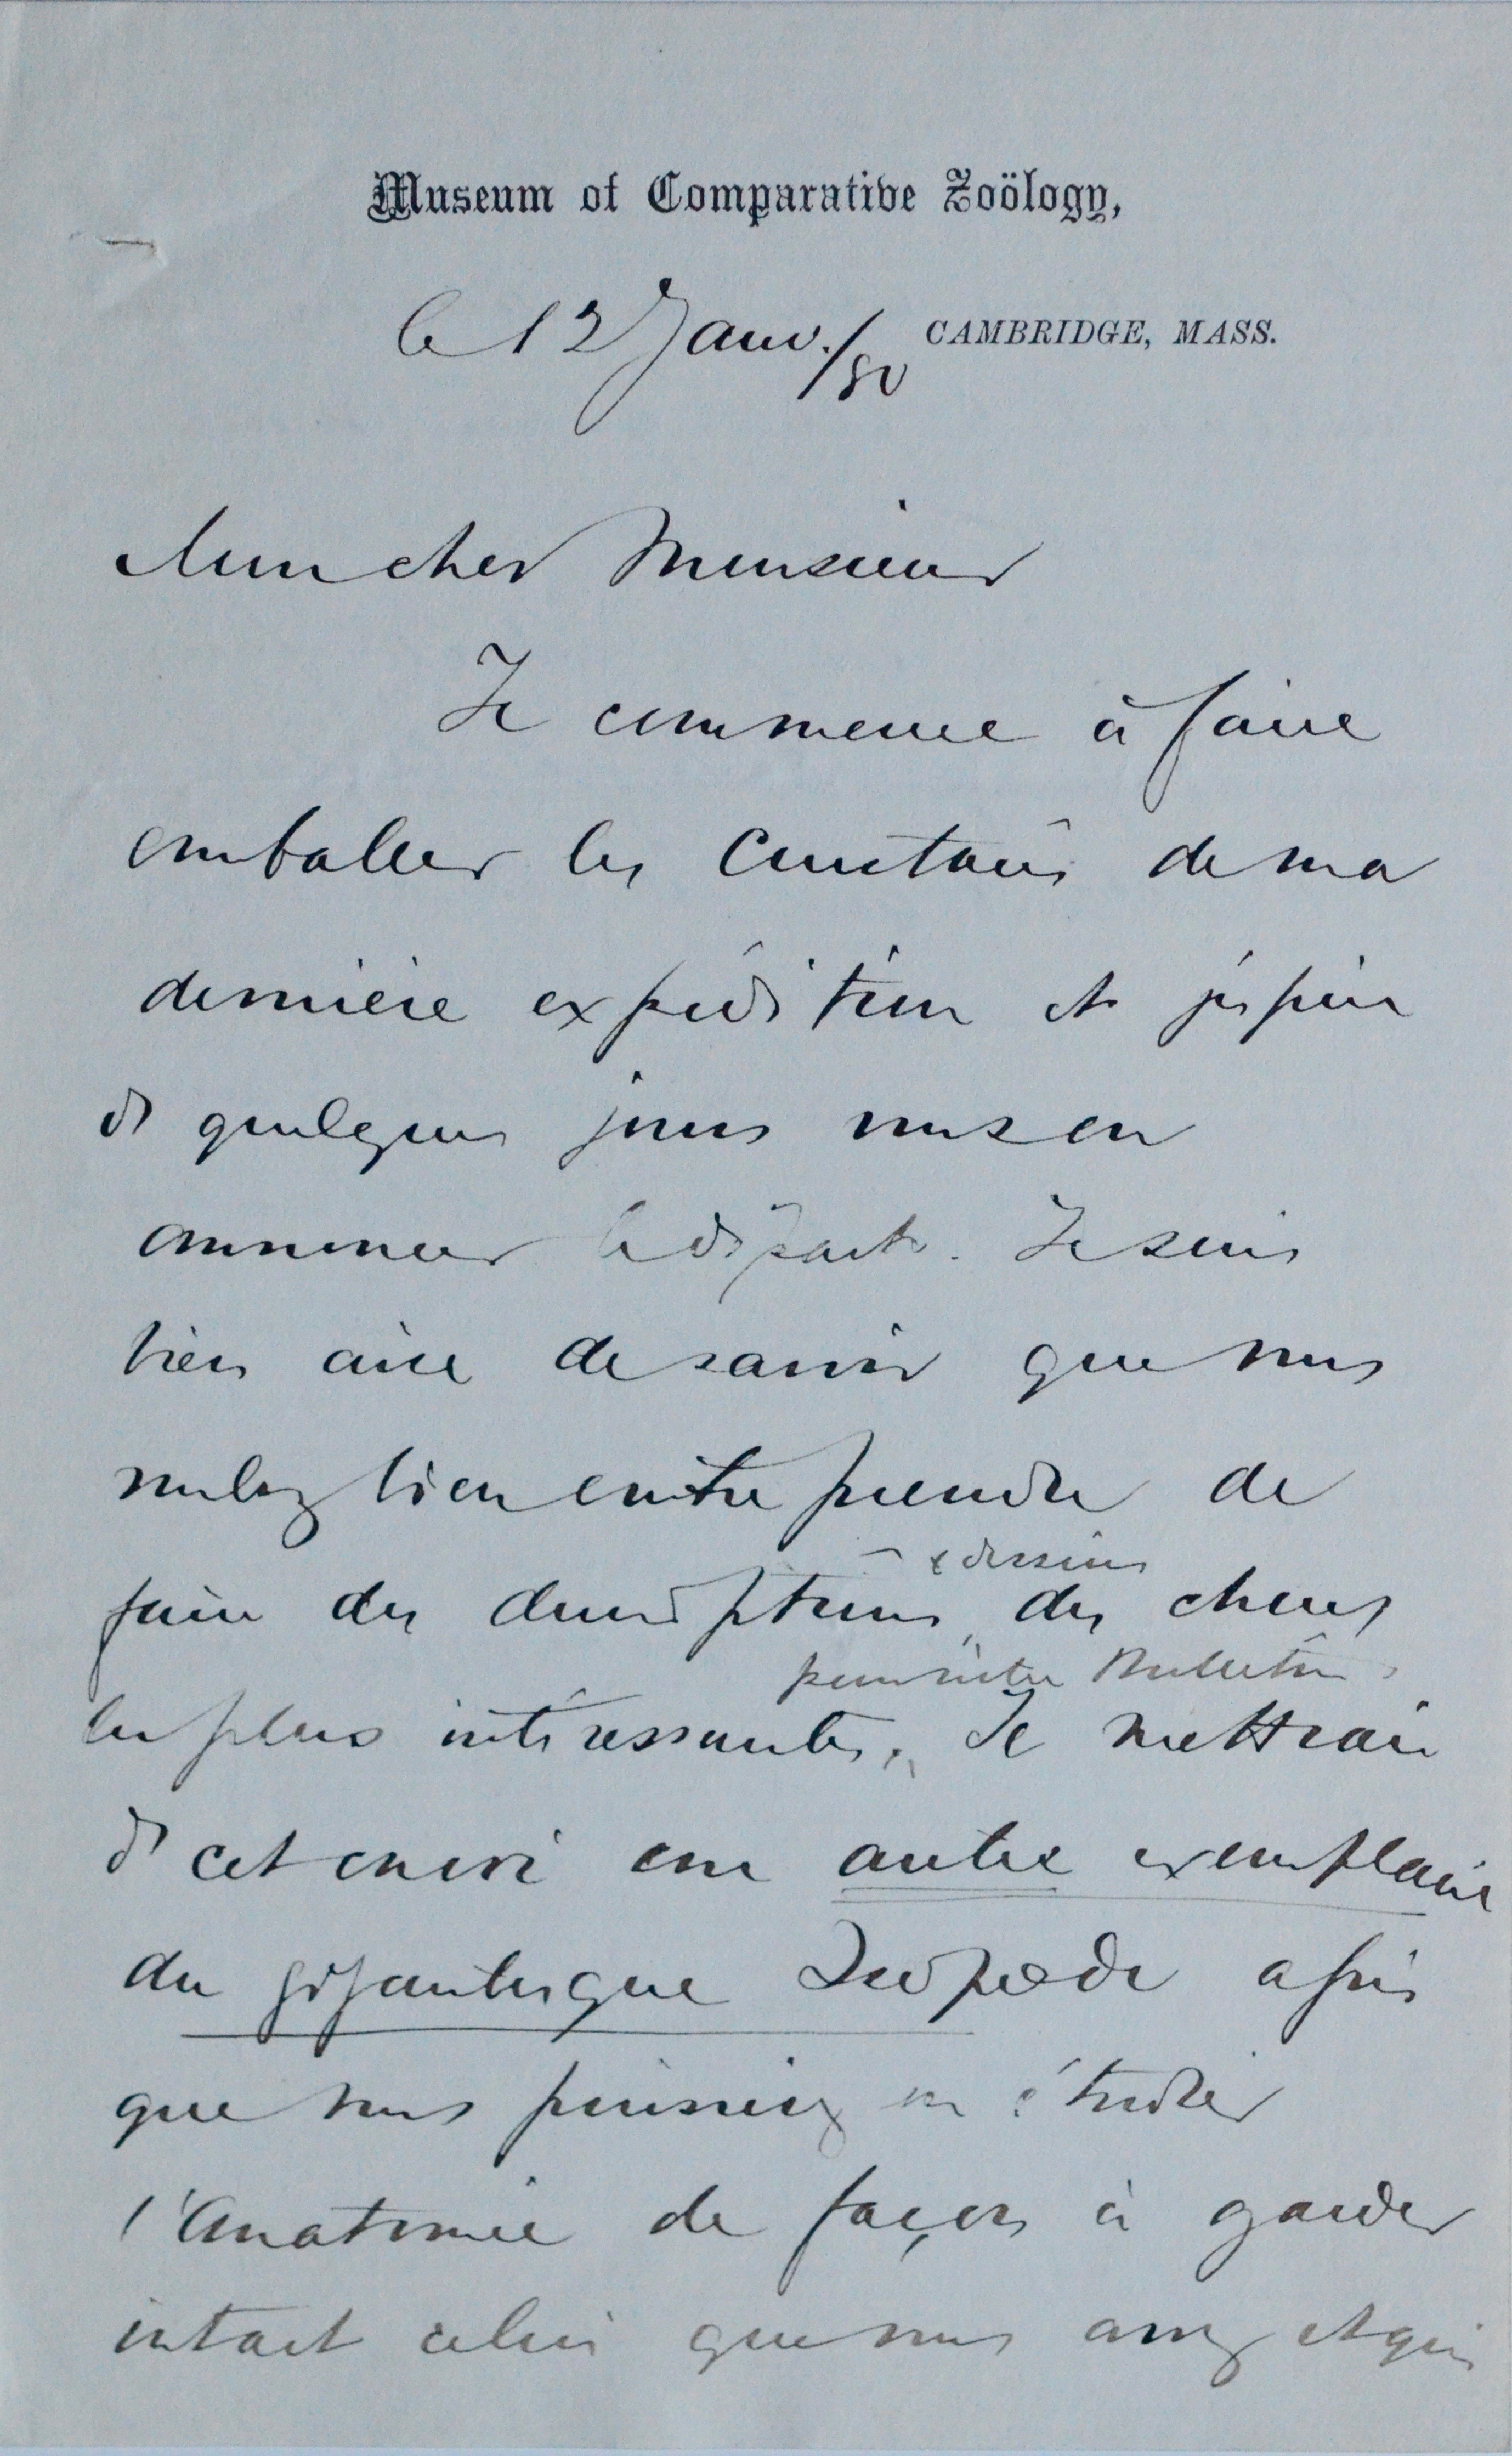 Museum of Comparative Zoölogy,
le 12 Janv./80 CAMBRIDGE, MASS.
Mon cher Monsieur
Je commence à faire
emballer les Crustacés de ma
dernière expédition et j'espère
d quelques jours vous en
annoncer le départ. Je suis
bien aise de savoir que vous
voulez bien entreprendre de
faire des descriptions & dessins des choses
les plus intéressantes, pour notre Bulletin. Je mettrai
d cet envoi un autre exemplaire
du gigantesque Isopode afin
que vous puissiez en étudier
l'Anatomie de façon à garder
intact celui que vous avez et qui